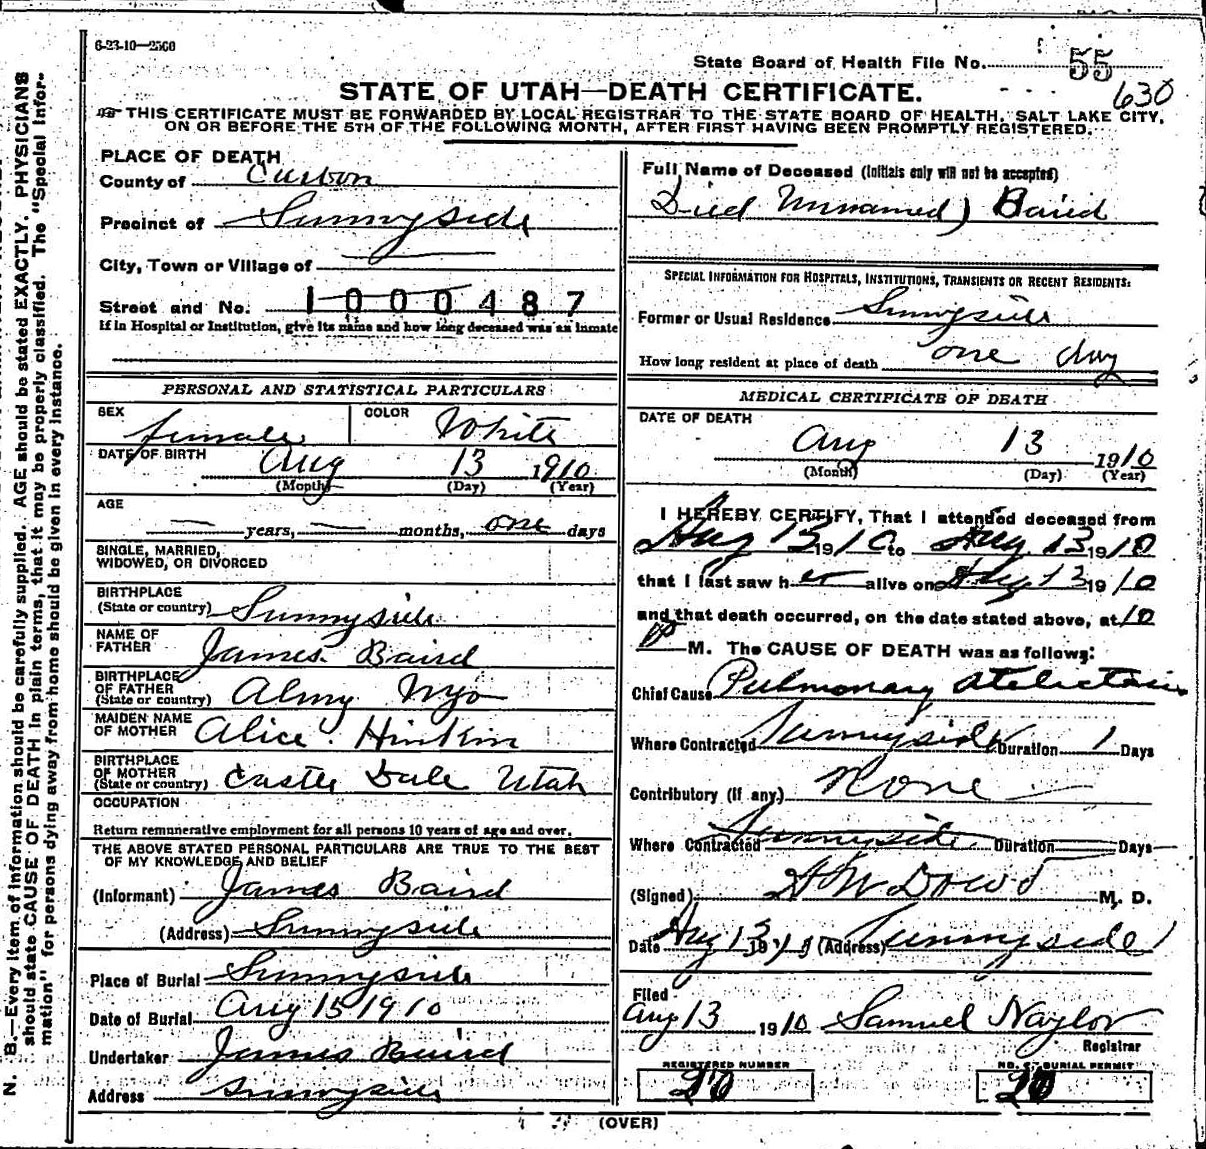 6-23-10—2500
State Board of Health File No. 55
630
STATE OF UTAH—DEATH CERTIFICATE.
THIS CERTIFICATE MUST BE FORWARDED BY LOCAL REGISTRAR TO THE STATE BOARD OF HEALTH, SALT LAKE CITY,
ON OR BEFORE THE 5TH OF THE FOLLOWING MONTH, AFTER FIRST HAVING BEEN PROMPTLY REGISTERED.
N. B.—Every item of information should be carefully supplied. AGE should be stated EXACTLY. PHYSICIANS
should state CAUSE OF DEATH in plain terms, that it may be properly classified. The "Special Infor-
mation" for persons dying away from home should be given in every instance.
PLACE OF DEATH
County of Carbon
Precinct of Sunnyside
City, Town or Village of —
Street and No. 1000487
If in Hospital or Institution, give its name and how long deceased was an inmate
PERSONAL AND STATISTICAL PARTICULARS
SEX female COLOR White
DATE OF BIRTH Aug 13 1910
(Month) (Day) (Year)
AGE
— years, — months, one days
SINGLE, MARRIED,
WIDOWED, OR DIVORCED
BIRTHPLACE
(State or country) Sunnyside
NAME OF
FATHER James Baird
BIRTHPLACE
OF FATHER
(State or country) Almy Wyo
MAIDEN NAME
OF MOTHER Alice
BIRTHPLACE
OF MOTHER
(State or country) Castle Dale Utah
OCCUPATION
Return remunerative employment for all persons 10 years of age and over.
THE ABOVE STATED PERSONAL PARTICULARS ARE TRUE TO THE BEST
OF MY KNOWLEDGE AND BELIEF
(Informant) James Baird
(Address) Sunnyside
Place of Burial Sunnyside
Date of Burial Aug 15 1910
Undertaker James Baird
Address Sunnyside
Full Name of Deceased (Initials only will not be accepted)
Died Unnamed) Baird
SPECIAL INFORMATION FOR HOSPITALS, INSTITUTIONS, TRANSIENTS OR RECENT RESIDENTS:
Former or Usual Residence Sunnyside
How long resident at place of death one day
MEDICAL CERTIFICATE OF DEATH
DATE OF DEATH
Aug 13 1910
(Month) (Day) (Year)
I HEREBY CERTIFY, That I attended deceased from
Aug 13 1910 to Aug 13 1910
that I last saw her alive on Aug 13 1910
and that death occurred, on the date stated above, at 10
P M. The CAUSE OF DEATH was as follows:
Chief Cause Pulmonary Atelectasis
Where Contracted Sunnyside Duration 1 Days
Contributory (if any) None
Where Contracted Sunnyside Duration Days
(Signed) M. D.
Date Aug 13 (Address) Sunnyside
Filed
Aug 13 1910 Samuel Naylor
Registrar
REGISTERED NUMBER
20
NO. OF BURIAL PERMIT
20
(OVER)